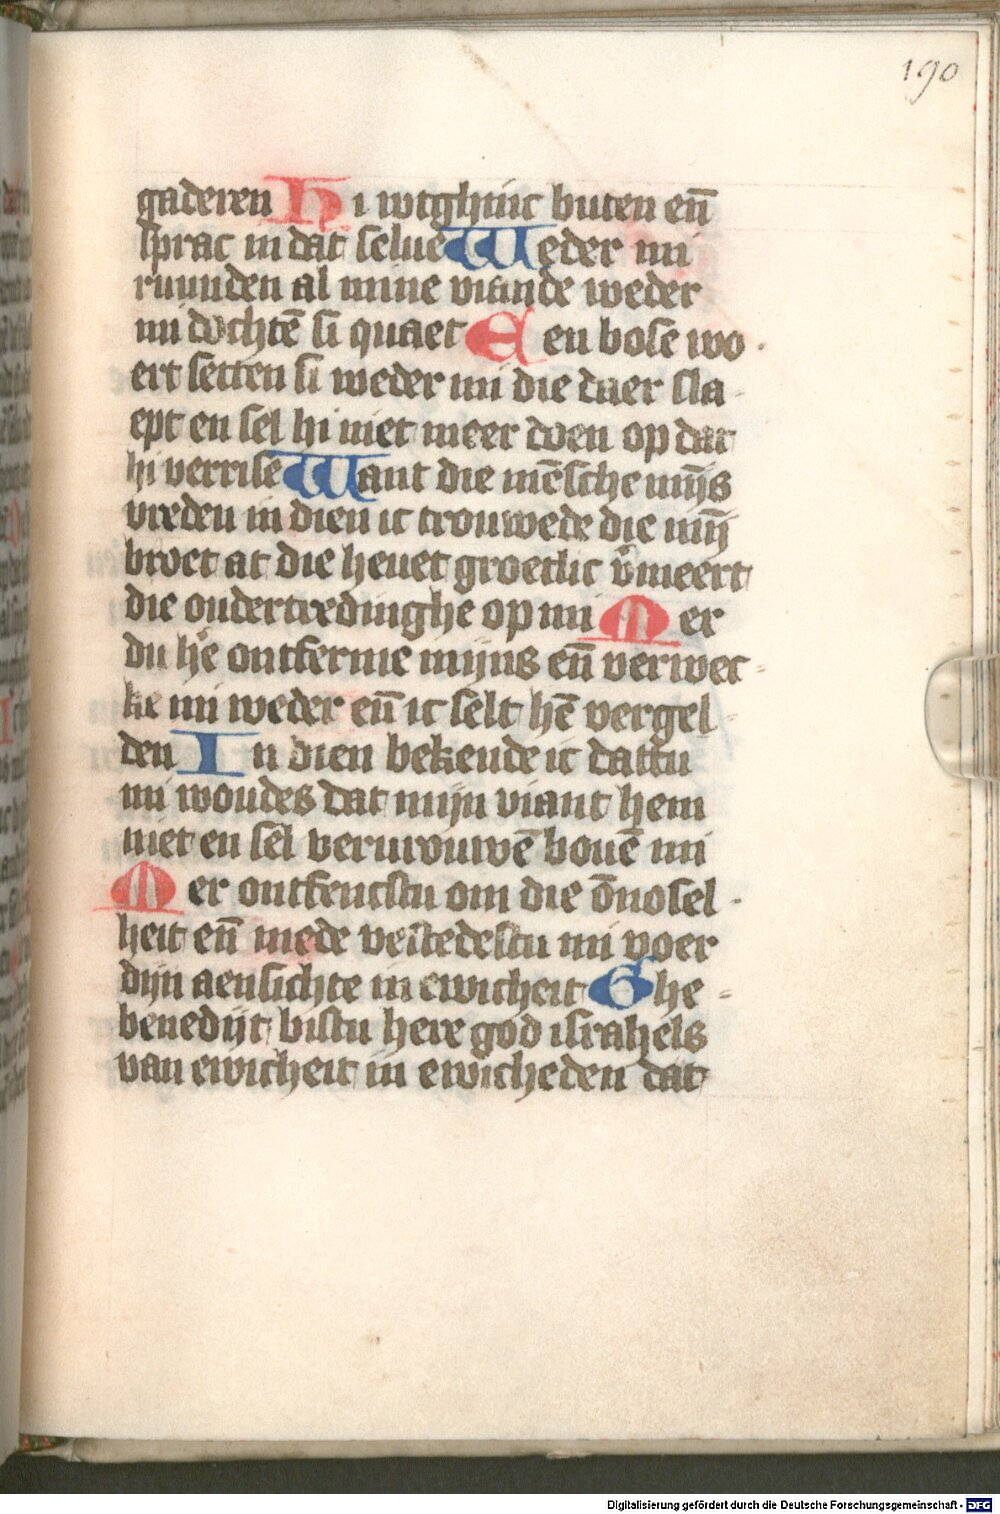 190
gaderen Hi wtghinc buten en̄
sprac in dat selue Weder mi
ruunden al mine viande weder
mi dochtē si quaet Een bose wo
ert setten si weder mi die daer sla
ept en sel hi niet meer doen op dat
hi verrise Want die mēsche mijs
vreden in dien ic trouwede die mij̄
broet at die heuet groetlic v̄meert
die ondertredinghe op mi Mer
du hē ontferme mijns en̄ verwec
ke mi weder en̄ ic selt hē vergel
den In dien bekende ic dattu
mi woudes dat mijn viant hem
niet en sel vervrouwē bouē mi
Mer ontfencstu om die ōnosel
heit en̄ mede vestedestu mi voer
dijn aensichte in ewicheit Ghe
benedijt bistu here god israhels
van ewicheit in ewicheden dat
Digitalisierung gefördert durch die Deutsche Forschungsgemeinschaft - DFG